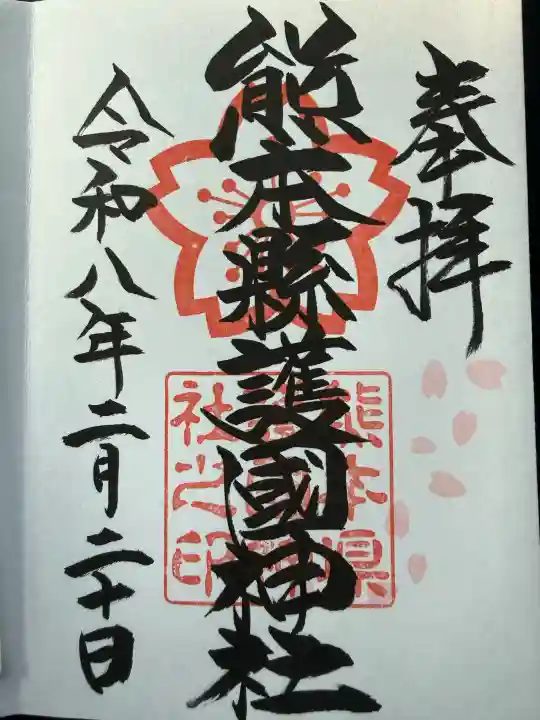 奉拝
熊本縣護國神社
熊本県護国神社之印
令和八年二月二十日